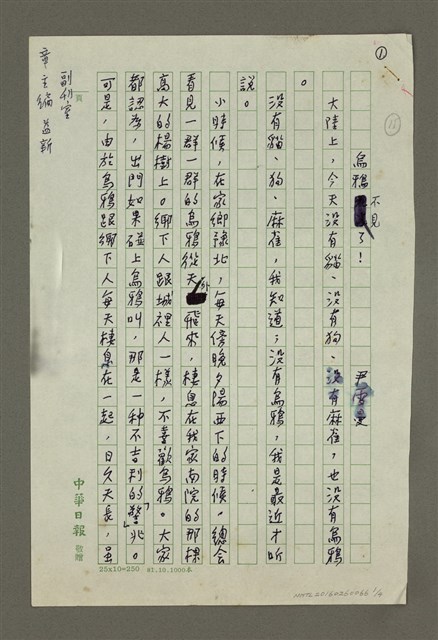 ①
15
烏鴉不見了！
尹雪曼
大陸上，今天沒有貓、沒有狗、沒有麻雀，也沒有烏鴉
。
沒有貓、狗、麻雀，我知道；沒有烏鴉，我是最近才听
說。
小時候，在家鄉豫北，每天傍晚夕陽西下的時候，總會
看見一群一群的烏鴉從天外飛來，棲息在我家南院的那棵
高大的楊樹上。鄉下人跟城裡人一樣，不喜歡烏鴉。大家
都認為，出門如果碰上烏鴉叫，那是一種不吉利的「警兆」。
可是，由於烏鴉跟鄉下人每天棲息在一起，日久天長，虽
頁
副刊室
章主編 益新
中華日報 敬贈
25x10=250 81.10.1000本
NMTL20160260066 1/9